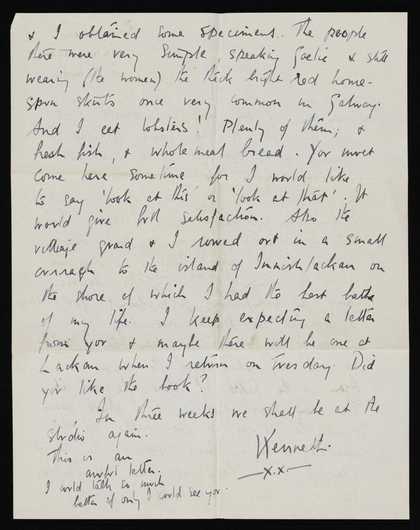 & I obtained some specimens. The people
there were very simple, speaking Gaelic & still
wearing (the women) the thick bright red home-
spun skirts once very common in Galway.
And I eat lobsters! Plenty of them; &
fresh fish, & whole meal bread. You must
come here sometime for I would like
to say 'look at this' or 'look at that'. It
would give full satisfaction. Also the
village guard & I rowed out in a small
curragh to the island of Innishlackan on
the shore of which I had the best bathe
of my life. I keep expecting a letter
from you & maybe there will be one at
Lackan when I return on Tuesday. Did
you like the book?
In three weeks we shall be at the
studio again.
Kenneth.
x.x
This is an
awful letter.
I could talk so much
better if only I could see you.